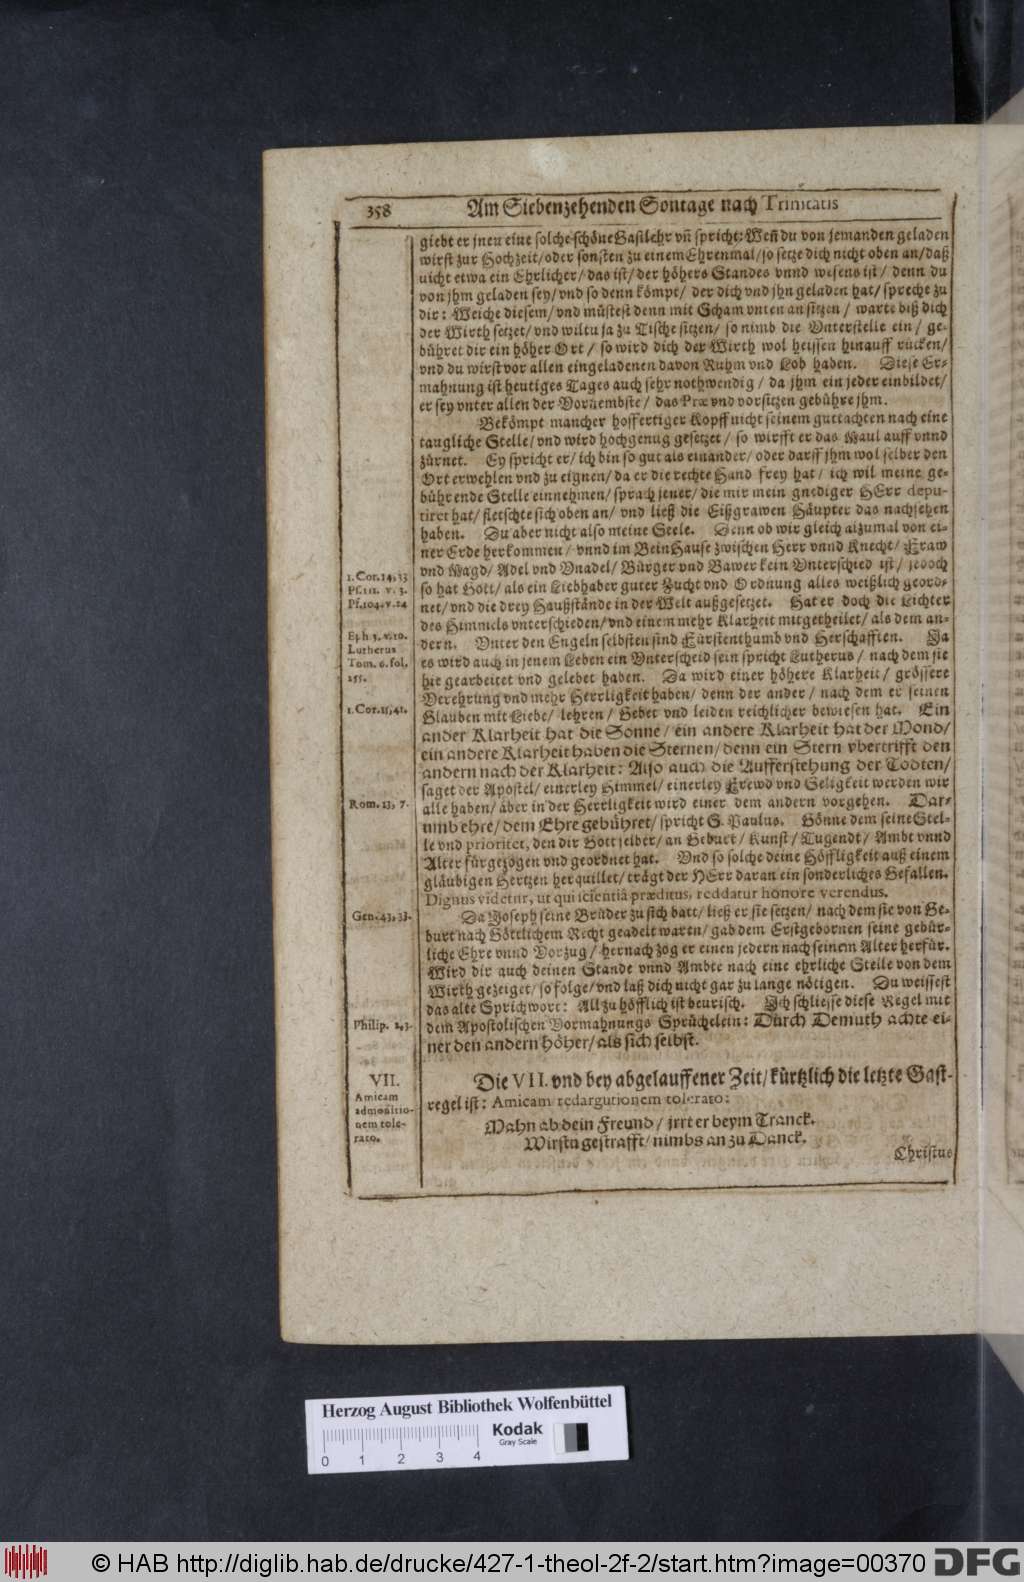 358 Am Siebenzehenden Sontage nach Trinitatis
giebt er jnen eine solche schöne Gastlehr vñ spricht: Weñ du von jemanden geladen
wirst zur Hochzeit/oder sonsten zu einem Ehrenmal/so setze dich nicht oben an/daß
nicht etwa ein Ehrlicher/das ist/der höhers Standes vnnd wesens ist/ denn du
von jhm geladen sey/vnd so denn kömpt/ der dich vnd jhn geladen hat/ spreche zu
dir: Weiche diesem/vnd müstest denn mit Scham vnten an sitzen / warte biß dich
der Wirth setzet/vnd wiltu ja zu Tische sitzen/ so nimb die Vnterstelle ein / ge-
bühret dir ein höher Ort / so wird dich der Wirth wol heissen hinauff rücken/
vnd du wirst vor allen eingeladenen davon Ruhm vnd Lob haben. Diese Er-
mahnung ist heutiges Tages auch sehr nothwendig / da jhm ein jeder einbildet/
er sey vnter allen der Vornembste/ das Præ vnd vorsitzen gebühre jhm.
Bekömpt mancher hoffertiger Kopff nicht seinem guttachten nach eine
taugliche Stelle/vnd wird hochgenug gesetzet / so wirfft er das Maul auff vnnd
zürnet. Ey spricht er/ ich bin so gut als ein ander/ oder darff jhm wol selber den
Ort erwehlen vnd zu eignen/ da er die rechte Hand frey hat / ich wil meine ge-
bührende Stelle einnehmen/ sprach jener/ die mir mein gnediger HErr depu-
tiret hat/ fletschte sich oben an/ vnd ließ die Eißgrawen Häupter das nachsehen
haben. Du aber nicht also meine Seele. Denn ob wir gleich alzumal von ei-
ner Erde herkommen/ vnnd im BeinHause zwischen Herr vnnd Knecht/ Fraw
1. Cor. 14, 33 vnd Magd/ Adel vnd Vnadel/ Bürger vnd Bawer kein Vnterschied ist / jedoch
Ps. 111. v. 3. so hat Gott/ als ein Liebhaber guter Zucht vnd Ordnung alles weißlich geord-
Ps. 104. v. 24 net/ vnd die drey Haußstände in der Welt außgesetzet. Hat er doch die Lichter
des Himmels vnterschieden/ vnd einem mehr Klarheit mitgetheilet/ als dem an-
Eph 3. v. 10. dern. Vnter den Engeln selbsten sind Fürstenthumb vnd Herschafften. Ja
Lutherus
Tom. 6. fol. es wird auch in jenem Leben ein Vnterscheid sein spricht Lutherus / nach dem sie
255. hie gearbeitet vnd gelebet haben. Da wird einer höhere Klarheit / grössere
Verehrung vnd mehr Herrligkeit haben/ denn der ander / nach dem er seinen
1. Cor. 15, 41. Glauben mit Liebe/ lehren / Gebet vnd leiden reichlicher bewiesen hat. Ein
ander Klarheit hat die Sonne/ ein andere Klarheit hat der Mond/
ein andere Klarheit haben die Sternen/ denn ein Stern vbertrifft den
andern nach der Klarheit: Also auch die Aufferstehung der Todten/
saget der Apostel/ einerley Himmel/ einerley Frewd vnd Seligkeit werden wir
Rom. 13, 7. alle haben/ aber in der Herrligkeit wird einer dem andern vorgehen. Dar-
umb ehre/ dem Ehre gebühret/ spricht S. Paulus. Gönne dem seine Stel-
le vnd prioritet, den dir Gott selber/ an Geburt/ Kunst / Tugendt/ Ambt vnnd
Alter fürgezogen vnd geordnet hat. Vnd so solche deine Höffligkeit auß einem
gläubigen Hertzen herquillet/ trägt der HErr daran ein sonderliches Gefallen.
Dignus videtur, ut qui scientiâ præditus, reddatur honore verendus.
Gen. 43, 33. Da Joseph seine Brüder zu sich batt/ ließ er sie setzen/ nach dem sie von Ge-
burt nach Göttlichem Recht geadelt waren/ gab dem Erstgebornen seine gebür-
liche Ehre vnnd Vorzug / hernach zog er einen jedern nach seinem Alter herfür.
Wird dir auch deinen Stande vnnd Ambte nach eine ehrliche Stelle von dem
Wirth gezeiget/ so folge/ vnd laß dich nicht gar zu lange nötigen. Du weissest
das alte Sprichwort: All zu höfflich ist beurisch. Ich schliesse diese Regel mit
Philip. 2, 3. dem Apostolischen Vormahnungs Sprüchelein: Durch Demuth achte ei-
ner den andern höher/ als sich selbst.
VII. Die VII. vnd bey abgelauffener Zeit/ kürtzlich die letzte Gast-
Amicam regel ist: Amicam redargutionem tolerato:
admonitio-
nem tole- Mahn ab dein Freund / jrrt er beym Tranck.
rato. Wirstu gestrafft/ nimbs an zu Danck.
Christus
Herzog August Bibliothek Wolfenbüttel
Kodak
Gray Scale
0 1 2 3 4
© HAB http://diglib.hab.de/drucke/427-1-theol-2f-2/start.htm?image=00370 DFG